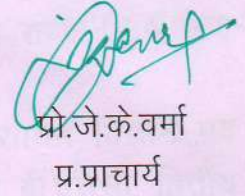 प्रो.जे.के.वर्मा
प्र.प्राचार्य